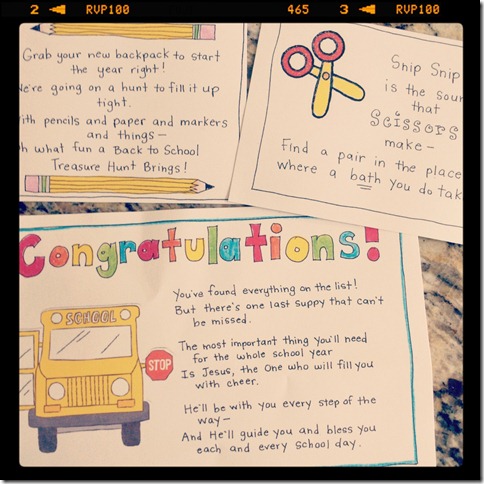 2 RVP100 465 3 RVP100
Grab your new backpack to start
the year right!
We're going on a hunt to fill it up
tight.
With pencils and paper and markers
and things—
Oh what fun a Back to School
Treasure Hunt Brings!
Snip Snip
is the sour
that
Scissors
make—
Find a pair in the place
where a bath you do tak
Congratulations!
SCHOOL
STOP
You've found everything on the list!
But there's one last suppy that can't
be missed.
The most important thing you'll need
for the whole school year
Is Jesus, the One who will fill you
with cheer.
He'll be with you every step of the
way—
And He'll guide you and bless you
each and every School day.